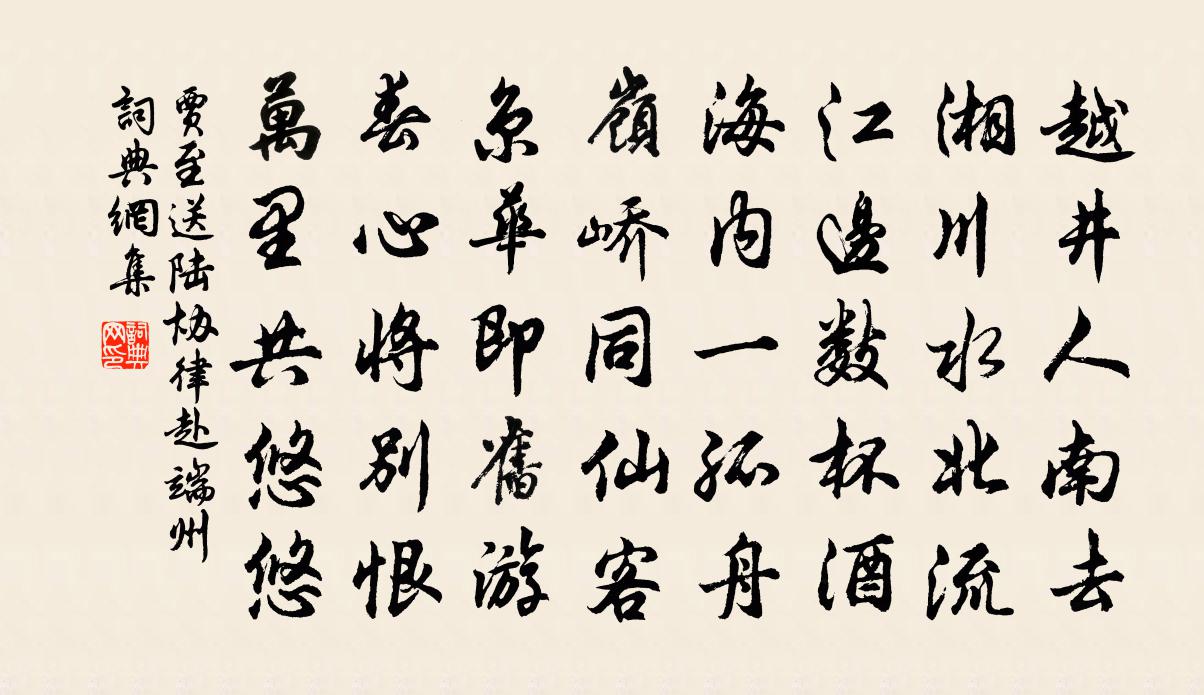 越井人南去
湘川水北流
江邊數杯酒
海內一孤舟
嶺嶠同仙客
京華即舊游
春心將別恨
萬里共悠悠
賈至送陆协律赴端州
詞典網集
詞典网印